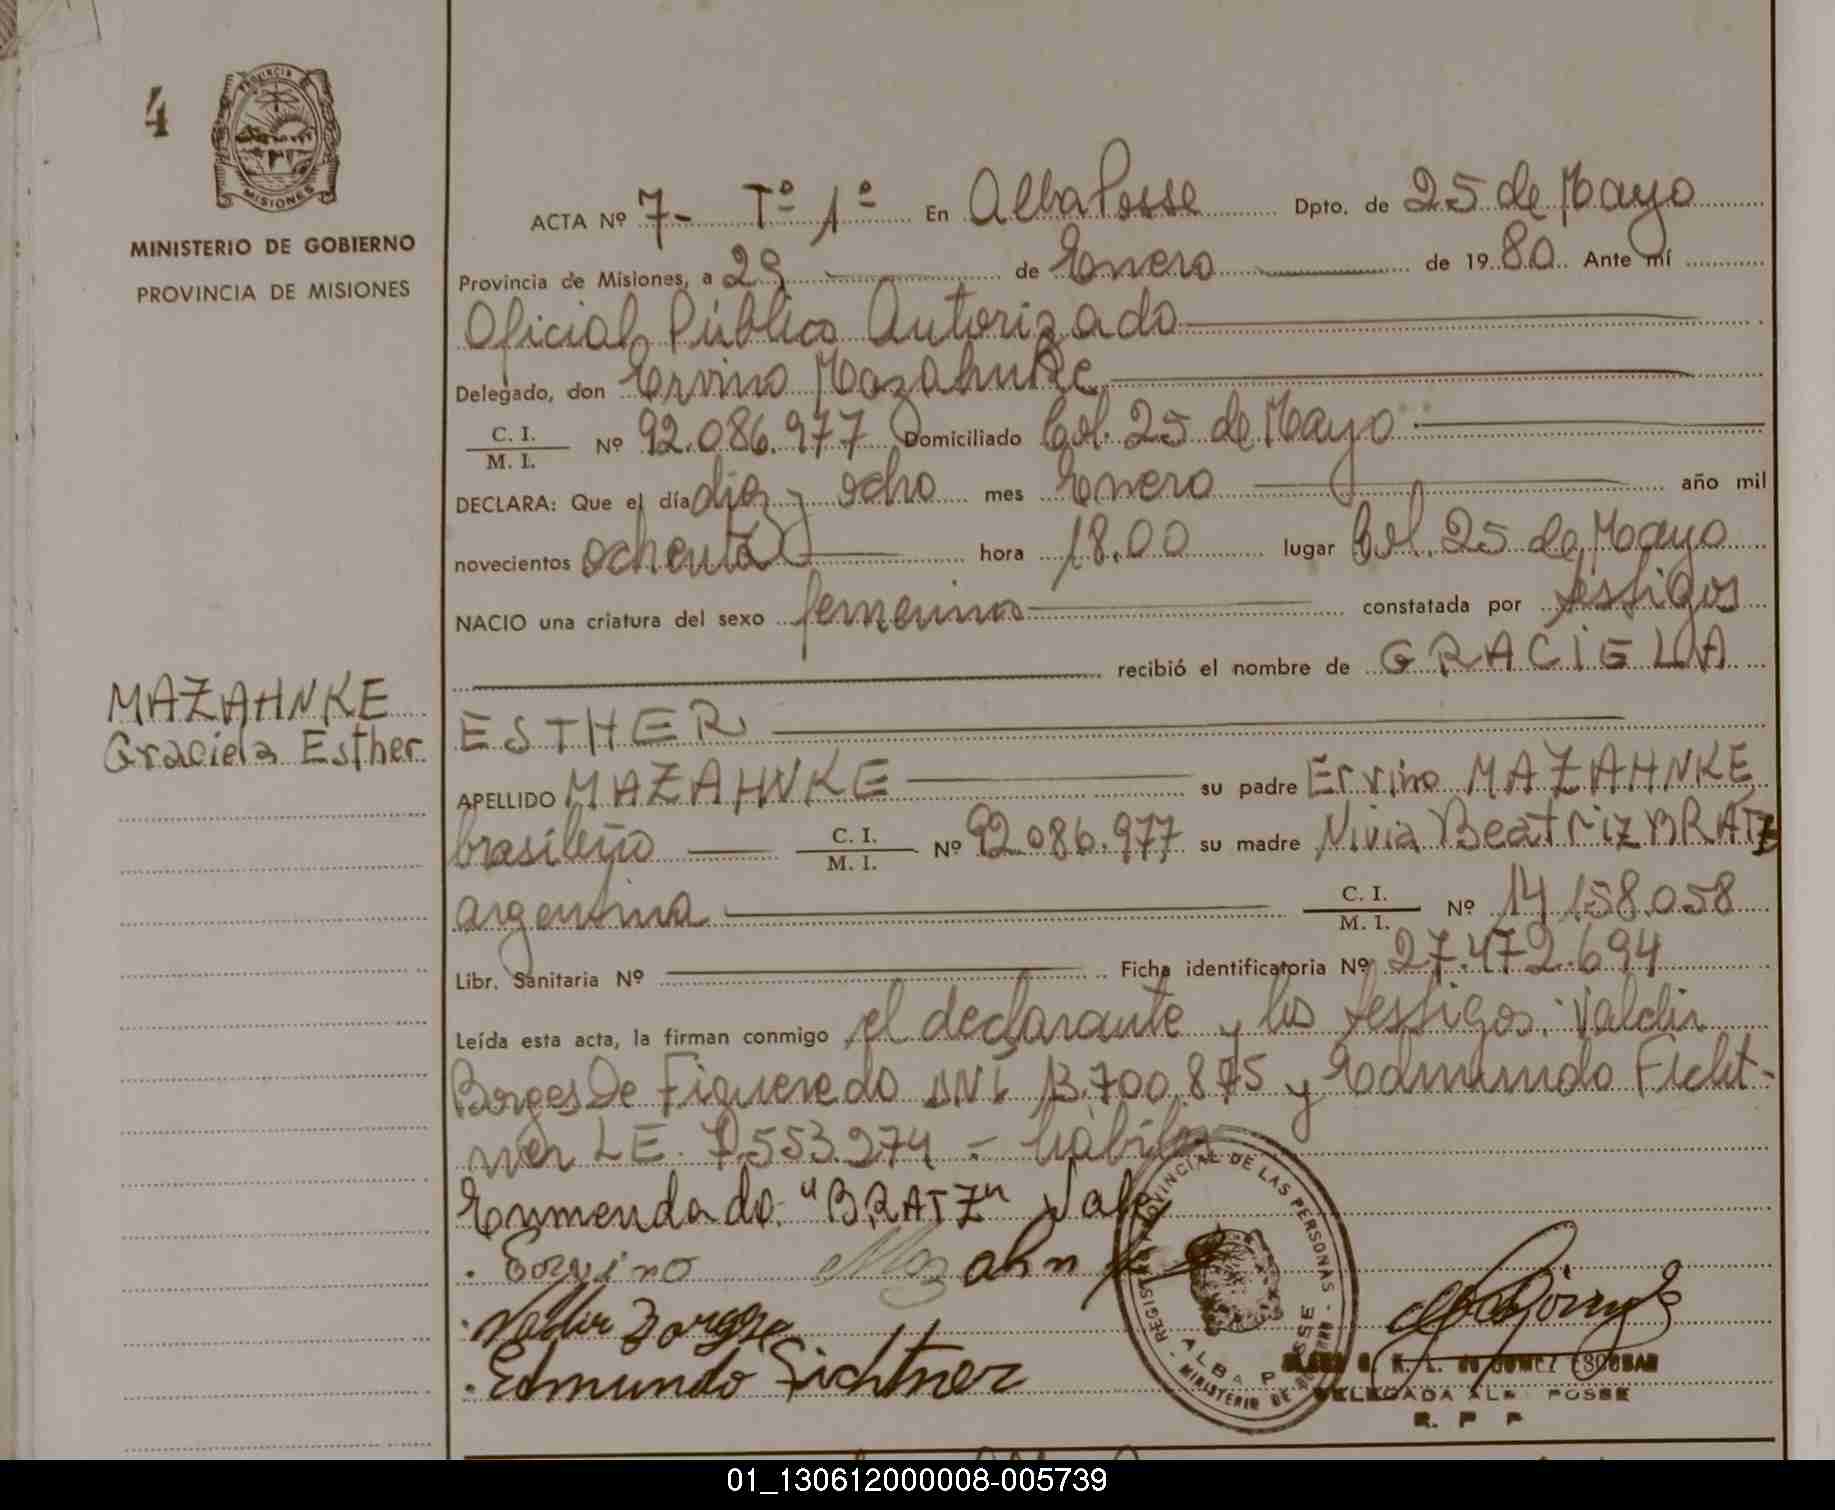 4
PROVINCIA
MISIONES
MINISTERIO DE GOBIERNO
PROVINCIA DE MISIONES
MAZAHNKE
Graciela Esther
ACTA Nº 7- Tº 1º En Alba Posse Dpto. de 25 de Mayo
Provincia de Misiones, a 29 de Enero de 1980 Ante mí
Oficial Público Autorizado
Delegado, don Ervino Mazahnke
C. I. / M. I. Nº 92.086.977 Domiciliado Col. 25 de Mayo
DECLARA: Que el día diez y ocho mes Enero año mil
novecientos ochenta hora 18.00 lugar Col. 25 de Mayo
NACIO una criatura del sexo femenino constatada por testigos
recibió el nombre de GRACIELA
ESTHER
APELLIDO MAZAHNKE su padre Ervino MAZAHNKE
brasileño C. I. / M. I. Nº 92.086.977 su madre Nivia Beatriz BRATZ
argentina C. I. / M. I. Nº 14.158.058
Libr. Sanitaria Nº Ficha identificatoria Nº 27.472.694
Leída esta acta, la firman conmigo el declarante y los testigos: Valdir
Borges De Figueredo DNI 13.700.875 y Edmundo Ficht-
ner LE. 7.553.274 = hábiles
Enmendado: "BRATZ" Vale
Ervino Mazahnke
Valdir Borges
Edmundo Fichtner
REGISTRO PROVINCIAL DE LAS PERSONAS - MINISTERIO DE GOBIERNO -
ALBA POSSE
de GOMEZ ESCOBAR
DELEGADA ALBA POSSE
R. P. P.
01_130612000008-005739